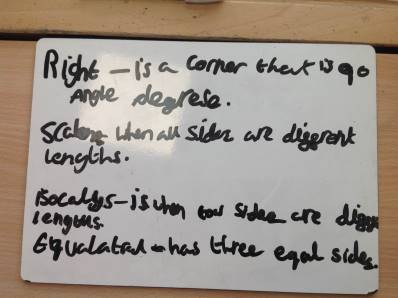 Right - is a corner that is 90
Angle degrese.
Scalene when all sides are diggrent
lengths.
isocalys - is when two sides are digg
lengths.
Equalatral - has three eqal sides.